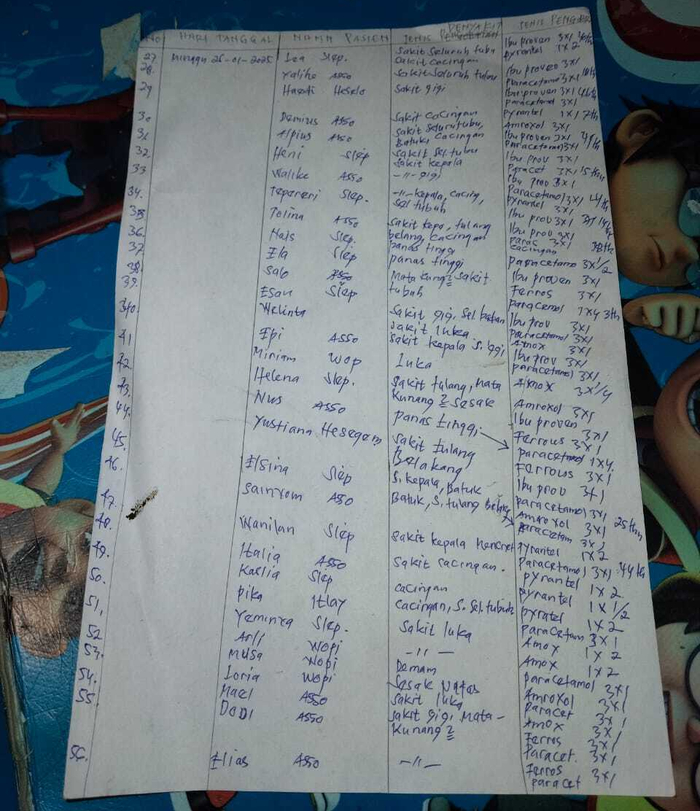 NO HARI TANGGAL NAMA PASIEN JENIS PENYAKIT JENIS PENGOBA
27 Minggu 26-01-2025 Lea Slep. Sakit seluruh tubu Ibu proven 3x1
28. Yalike Asso Sakit cacingan pyrantel 1x2
29 Haseti Heselo Sakit seluruh tubuh Ibu proven 3x1
Sakit gigi paracetamol 3x1
Ibu proven 3x1
paracetamol 3x1
30 Demius Asso Sakit cacingan pyrantel 1x1
31. Alpius Asso Sakit seluru tubu, Amroxol 3x1
Batuk, cacingan Ibu proven 3x1
32 Heni Slep Sakit sel. tubu paracetamol 3x1
33 Walike Asso Sakit kepala Ibu prov 3x1
-11- gigi Paracet 3x1
Ibu prov 3x1
34. Slep. -11- kepala, cacing, paracetamol 3x1
sel tubuh pyrantel 3x1
35 Tolina Asso Sakit kepa, tulang Ibu prov 3x1
36. Hais Slep. belang, cacingan Ibu prov 3x1
37 Ela Slep panas tinggi paras 3x1
38 Salo Asso panas tinggi cacingan
39. Esau Slep Mata kunang2 sakit paracetamo 3x1/2
tubuh Ibu proven 3x1
Ferros 3x1
40. Welinta Sakit gigi, sel badan paracemol 1x4
41 Epi Asso sakit luka Ibu prov 3x1
42. Miriam Wop sakit kepala s. ggi paracetamol 3x1
Amox 3x1
43. Helena Slep. Luka Ibu prov 3x1
44. Nus Asso Sakit tulang, Mata paracetamol 3x1
Kunang2 sesak Amox 3x1/4
Amroxol 3x1
45. Yustiana Hesegem panas tinggi Ibu proven 3x1
Sakit tulang Ferrous 3x1
46. Elsina Slep Belakang paracetamol 1x4.
47. Sainrom Asso S. kepala, Batuk Ferrous 3x1
Batuk, S. tulang belaka Ibu prov 3x1
paracetamol 3x1 25 thn
48. Wanilan Slep Amroxol 3x1
paracetam 3x1
49. Italia Asso Sakit kepala Mencret pyrantel 1x2
50. Kaslia Slep Sakit cacingan. Paracetamol 3x1
pyrantel 1x2
51. pika Itlay cacingan pyrantel 1x1/2
52 Yeminra Slep. cacingan, S. sel. tubuh pyratel 1x2
53. Arli Wopi Sakit luka paracetam 3x1
Musa Wopi -11- Amox 1x2
54. Loria Wopi Demam Amox 1x2
55. Mael Asso Sesak Napas paracetamol 3x1
Dodi Asso Sakit luka Amroxol 3x1
Sakit gigi, Mata- paracet 3x1
Kunang2 Amox 3x1
Ferros 3x1
56. Elias Asso -11- Paracet. 3x1
Ferros 3x1
paracet